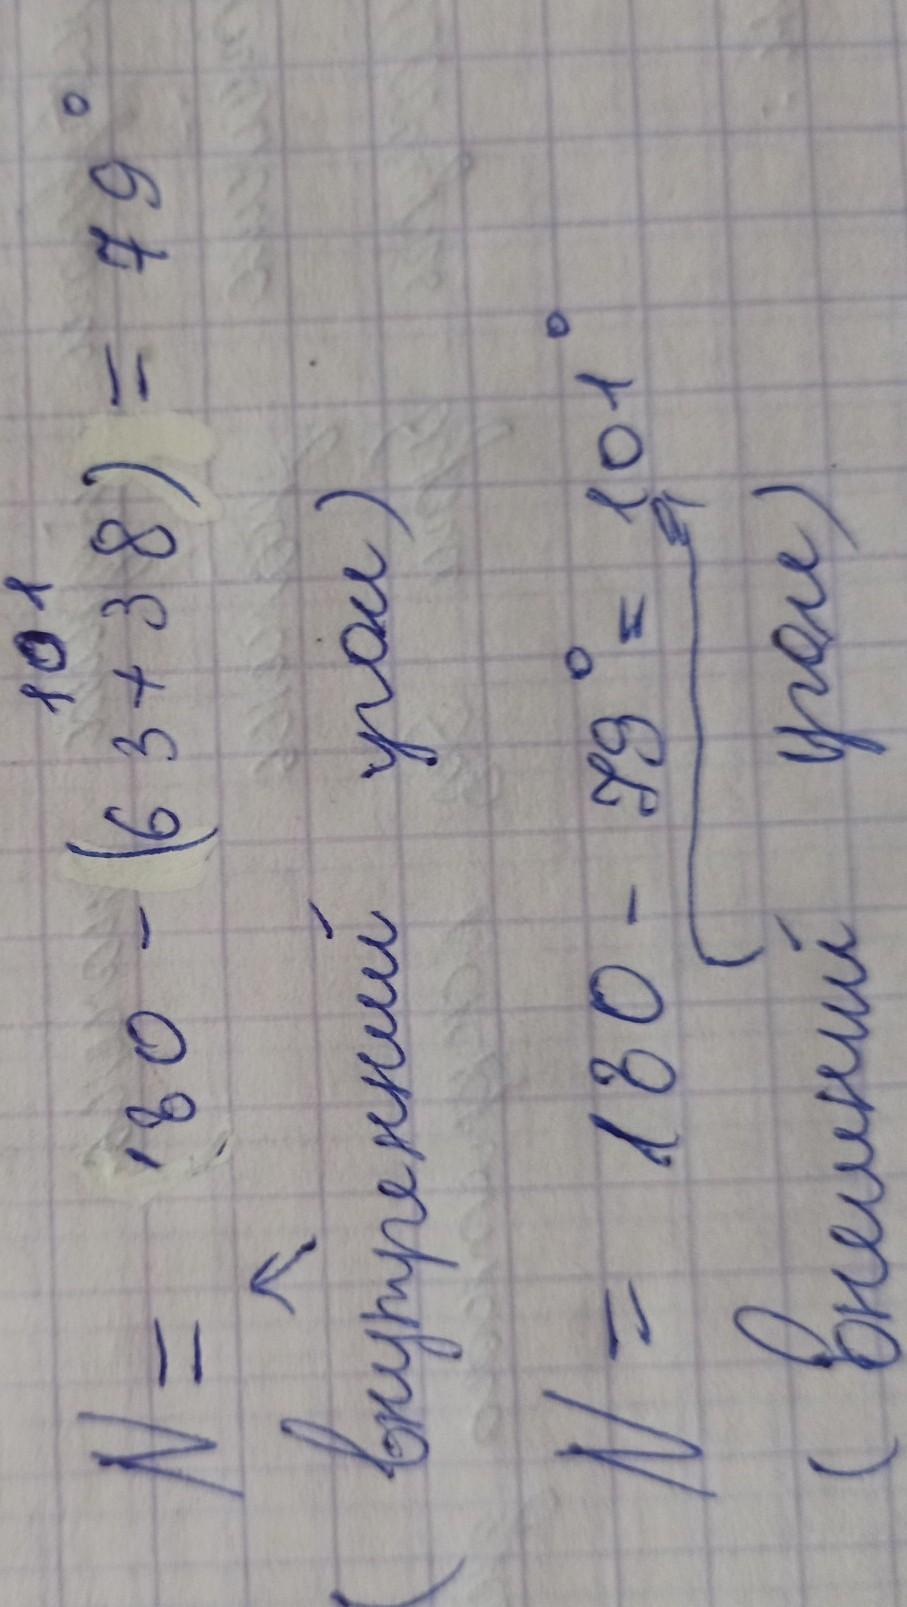 101
N = 180 - (63+38) = 79°
(внутрений угол)
N = 180 - 79° = 101°
(внешний угол)